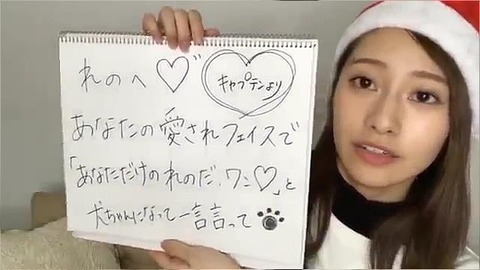 れのへ♡
キャプテンより
あなたの愛されフェイスで
「あなただけのれのだ、ワン♡」と
犬ちゃんになって一言言って